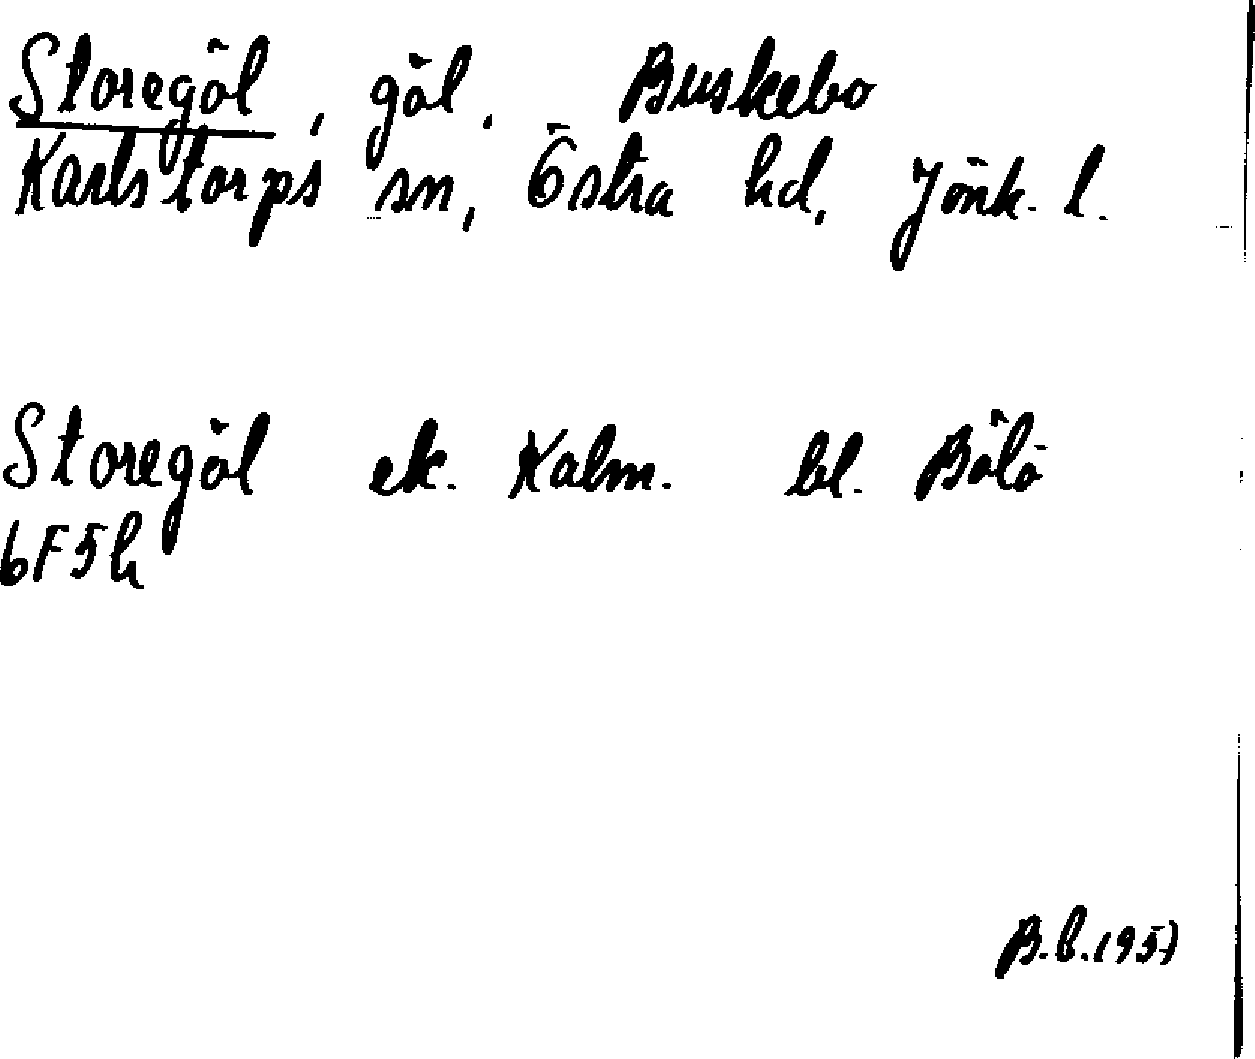 Storegöl, göl. Buskebo
Karlstorps sn, Östra hd, Jönk. l.
Storegöl ek. Kalm. bl. Bölö
6F5h
B.b.1957